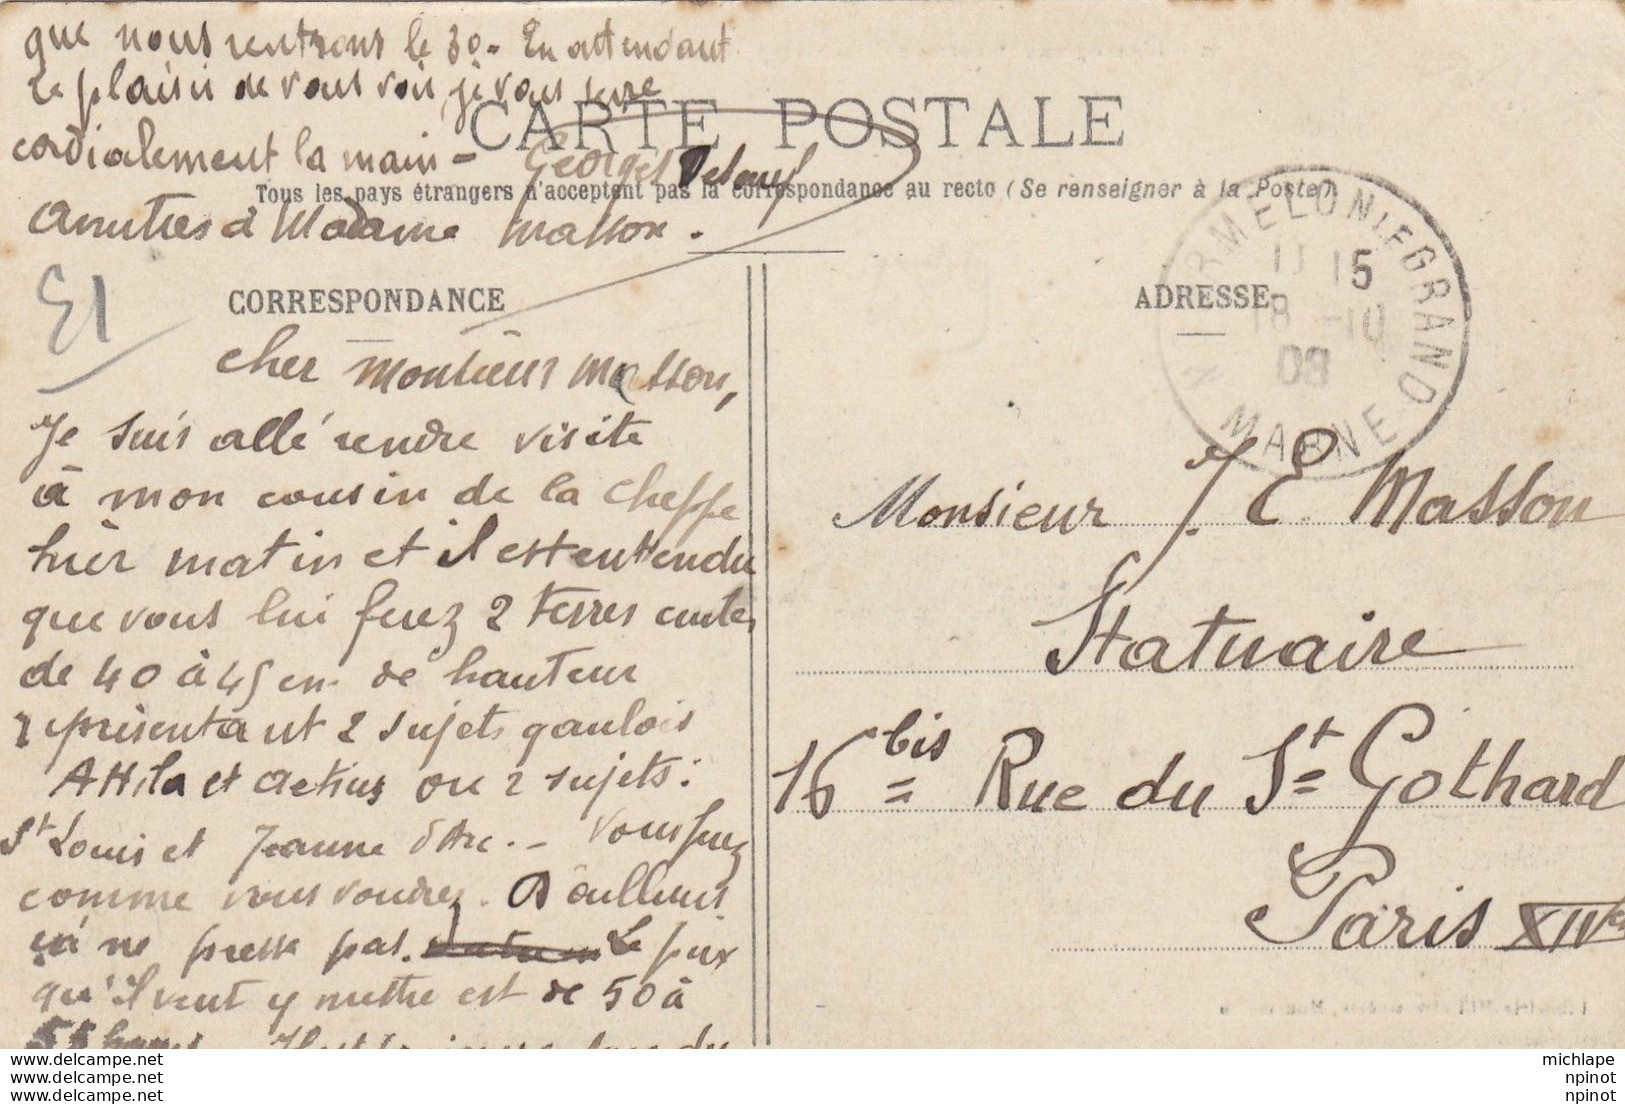 que nous rentrons le 30. En attendant
le plaisir de vous voir je vous serre
cordialement la main - Georges
amitiés à Madame Masson.
CARTE POSTALE
Tous les pays étrangers n'acceptent pas la correspondance au recto (Se renseigner à la Poste).
CORRESPONDANCE
ADRESSE
E1
MOURMELON-LE-GRAND
11 15
18 -10
08
MARNE
Cher Monsieur Masson,
Je suis allé rendre visite
à mon cousin de la Cheppe
hier matin et il est entendu
que vous lui ferez 2 terres cuites
de 40 à 45 cm. de hauteur
représentant 2 sujets gaulois
Attila et Aetius ou 2 sujets:
St Louis et Jeanne d'Arc. - Vous ferez
comme vous voudrez. D'ailleurs
ça ne presse pas. Le prix
qu'il veut y mettre est de 50 à
Monsieur J. E. Masson
Statuaire
16 bis Rue du St Gothard
Paris XIVe
michlape
npinot
www.delcampe.net
michlape
npinot